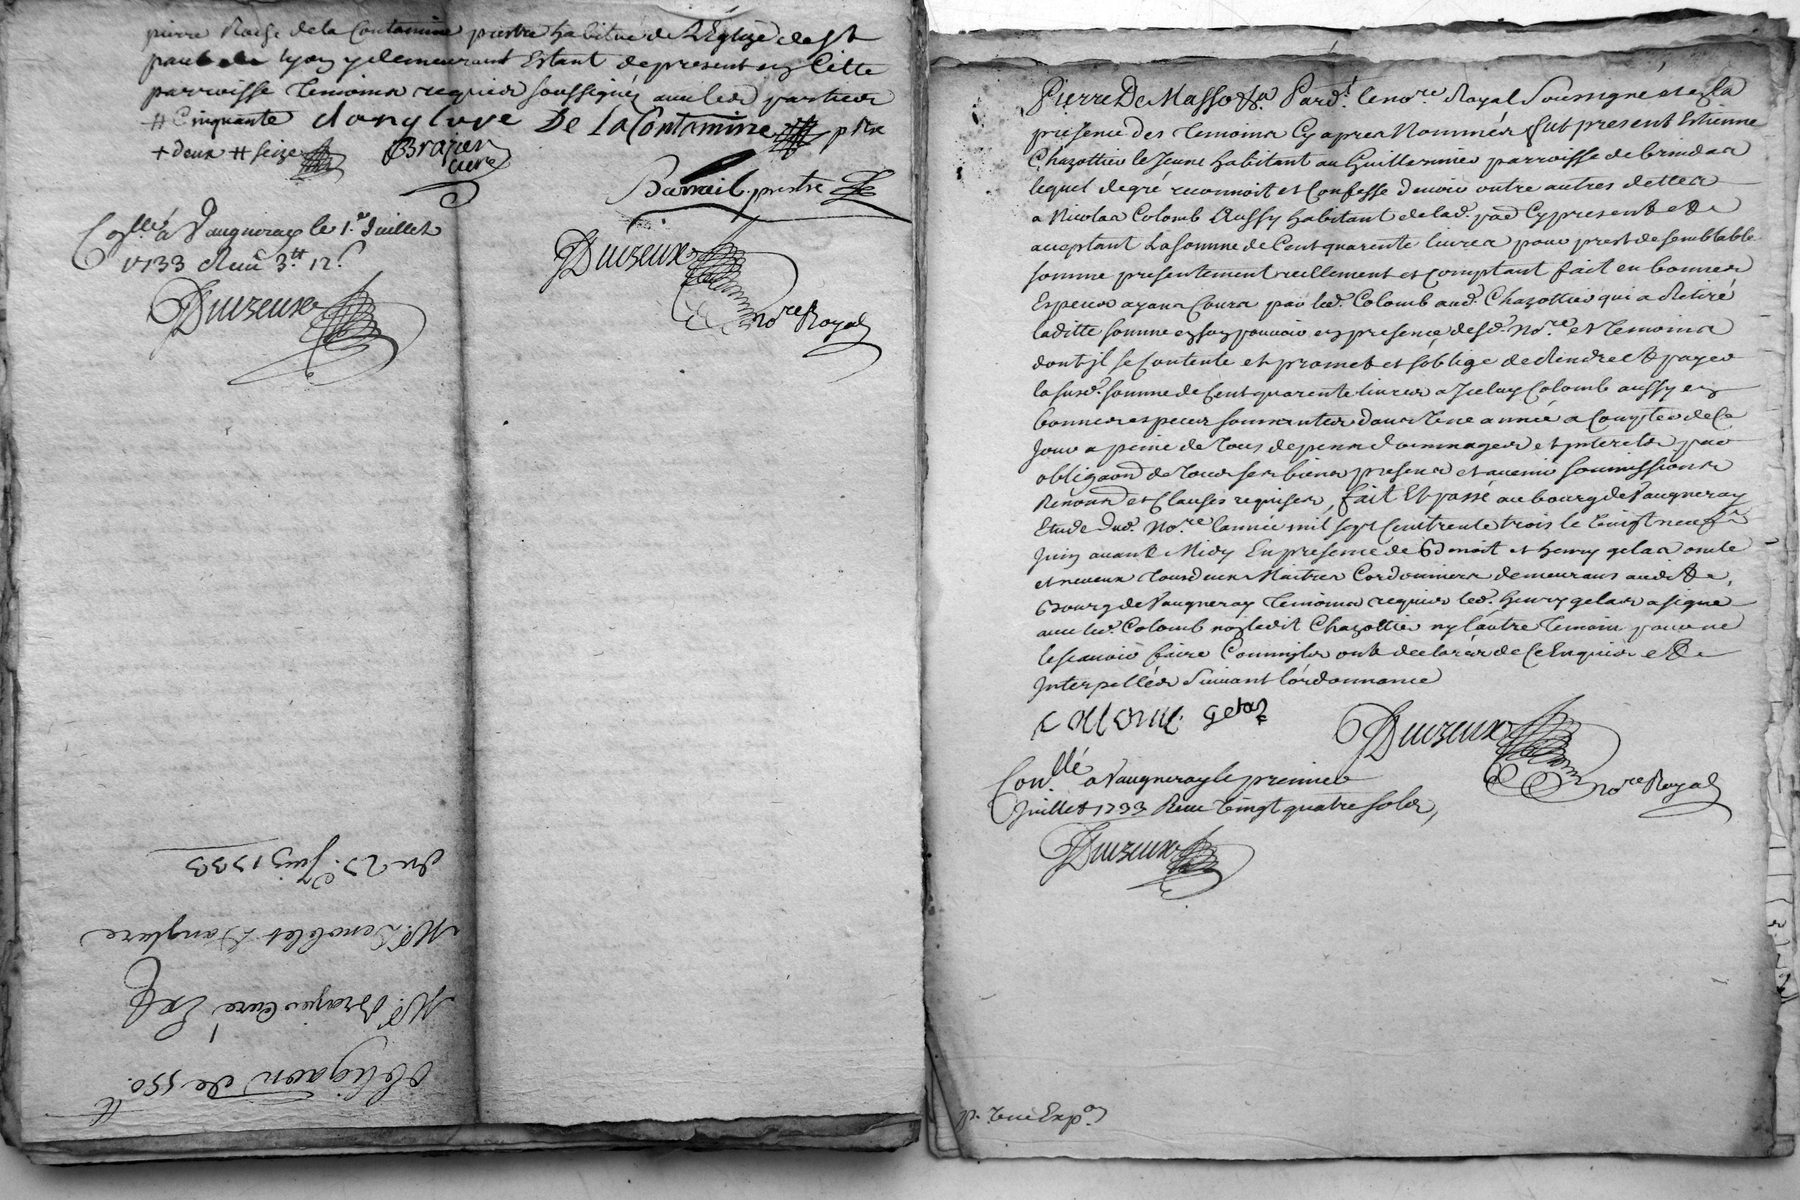 pierre Roche de la Contamine prestre habitué de L'Eglise de St
paul de Lyon y demeurant Estant de present en Cette
parroisse Temoins requis soussignés avec les parties
# Cinquante danglure De La Contamine ptre
+ deux # seize Brazier
curé
Barrail prestre
Collé à Vaugneray le 1er Juillet
1733 Receu 3tt 12s
Duvzeux
Duvzeux
nore Royal
du 27e Juin 1733
Mr Denoblet Danglure
Mr Brazier Curé Exp
Obligaon de 550tt
Pierre De Masso &a Pardt. le nore Royal Soussigné et en la
presence des Temoins Cy apres Nommés fut present Estienne
Chazottier le Jeune habitant au Guillermier parroisse de brindas
lequel de gré reconnoit et Confesse devoir outre autres dettes
a Nicolas Colomb Aussy habitant de lad. par Cy present et
acceptant La somme de Cent quarente livres pour prest de semblable
somme presentement reellement et Comptant fait en bonnes
Especes ayans Cours par led. Colomb aud. Chazottier qui a Retiré
laditte somme en son pouvoir en presence desd. Nore et Temoins
dont jl se Contente et promet et soblige de Rendre et payer
la susd. somme de Cent quarente livres a Jceluy Colomb aussy en
bonnes especes sonnantes dans Une année a Compter de Ce
jour a peine de Tous depens dommages et jnterets par
obligaon de Tous ses biens presens et avenir soumissions
Renonon et Clauses requises, fait Et passé au bourg de Vaugneray
Etude dud. Nore lannée mil sept Cent trente trois le Vingt neuf
Juin avant Midy En presence de Benoit et henry gelas oncle
et neveux Tous deux Maitres Cordonniers demeurans audit
Bourg de Vaugneray Temoins requis led. henry gelas a signé
avec led. Colomb non ledit Chazottier ny l'autre Temoin pour ne
le scavoir faire Comm'ils ont declarés de Ce Enquis et
Jnterpellés Suivant l'ordonnance
collomb gelas
Duvzeux
nore Royal
Conllé a Vaugneray le premier
Juillet 1733 Receu Vingt quatre sols,
Duvzeux